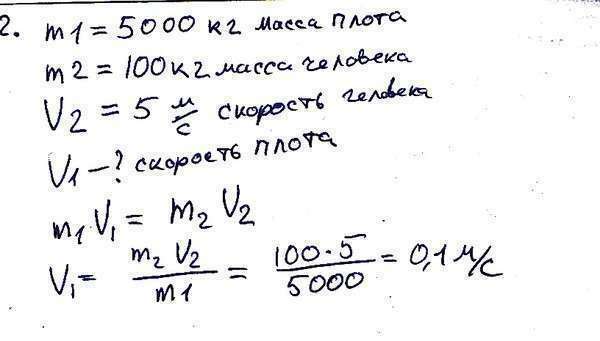 2. m1 = 5000 кг масса плота
m2 = 100 кг масса человека
V2 = 5 м/с скорость человека
V1 — ? скорость плота
m1 V1 = m2 V2
V1 = m2 V2 / m1 = 100·5 / 5000 = 0,1 м/с